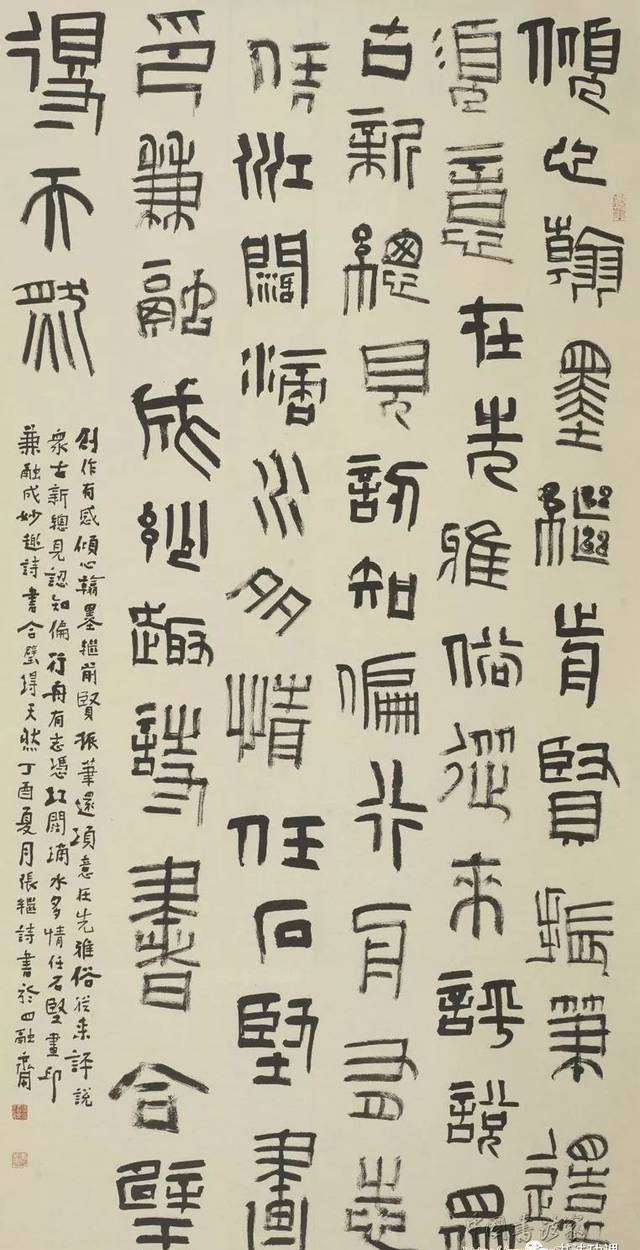 傾心翰墨繼前賢振筆還
須意在先雅俗從來評說眾
古新總見認知偏行舟有志
凭江闊滴水多情任石堅畫
印兼融成妙趣詩書合璧
得天然
創作有感傾心翰墨繼前賢振筆還須意在先雅俗從来評說
眾古新總見認知偏行舟有志憑江闊滴水多情任石堅畫印
兼融成妙趣詩書合璧得天然丁酉夏月張繼詩書於四融齋
中國書法報